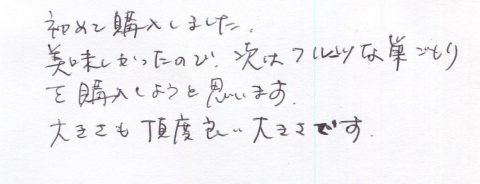 初めて購入しました.
美味しかったので、次はフルーツな巣ごもり
を購入しようと思います.
大きさも頂度良い大きさです.